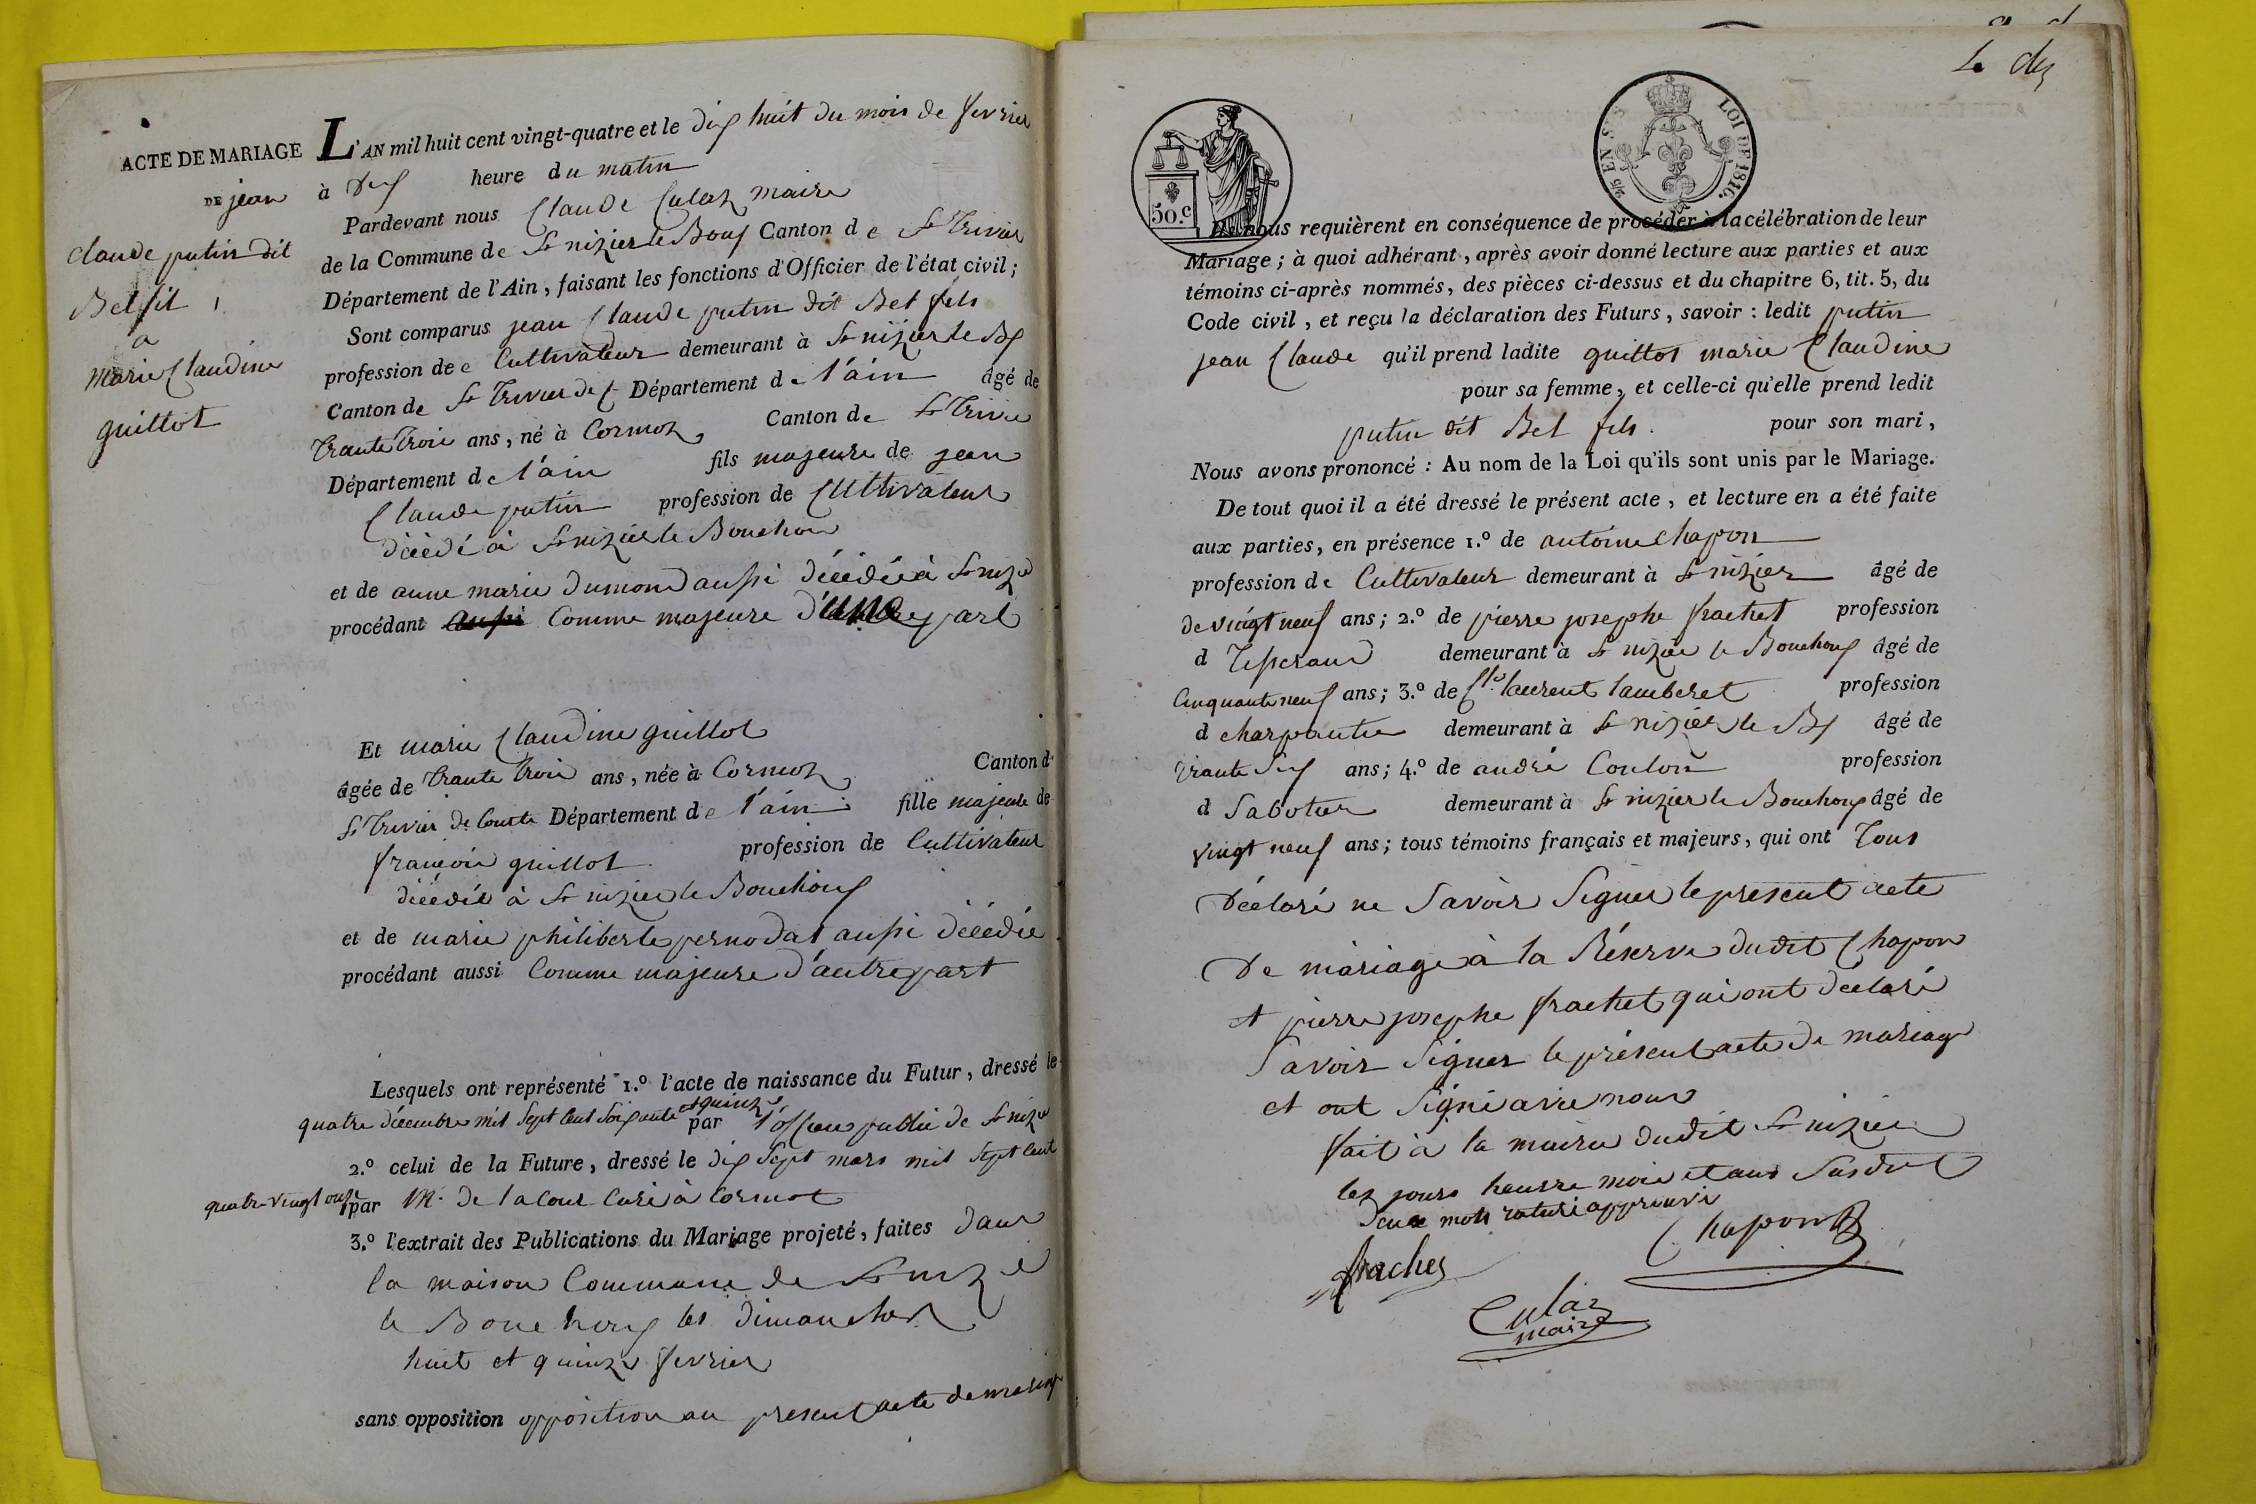 ACTE DE MARIAGE
DE jean
claude putin dit
Bel fil
a
marie Claudine
guillot
L'AN mil huit cent vingt-quatre et le dix huit du mois de fevrier
à heure du matin
Pardevant nous Claude Culaz maire
de la Commune de St nizier le Bouf Canton de St Trivier
Département de l'Ain, faisant les fonctions d'Officier de l'état civil;
Sont comparus jean Claude putin dit Bel fils
profession de e Cultivateur demeurant à St nizier le Bf
Canton de St Trivier de C Département de l'ain âgé de
Trante Trois ans, né à Cormoz Canton de St Trivie
Département de l'ain fils majeure de jean
Claude putin profession de Cultivateur
décédé à St nizier le Bouchou
et de anne marie Dumond aussi décédée à St nizie
procédant aussi Comme majeure d'une part
Et marie Claudine guillot
âgée de Trante Trois ans, née à Cormoz Canton d
St Trivier de Courte Département de l'ain fille majeure de
francois guillot profession de Cultivateur
décédé à St nizier le Bouchouf
et de marie philiberte pernodat aussi décédée
procédant aussi Comme majeure d'autre part
Lesquels ont représenté 1.º l'acte de naissance du Futur, dressé le
quatre décembre mil Sept Cent Soixante et quinze par l'officier public de St nizie
2.º celui de la Future, dressé le dix Sept mars mil Sept Cent
quatre-vingt onze par M. de lacour Curé à Cormot
3.º l'extrait des Publications du Mariage projeté, faites dans
la maison Commune de St nizie
le Bouchouf les dimanches
huit et quinze fevrier
sans opposition opposition au present acte de mariage
50.c
LOI DE 1816.
2/5 EN SUS
Ils nous requièrent en conséquence de procéder à la célébration de leur
Mariage; à quoi adhérant, après avoir donné lecture aux parties et aux
témoins ci-après nommés, des pièces ci-dessus et du chapitre 6, tit. 5, du
Code civil, et reçu la déclaration des Futurs, savoir: ledit putin
jean Claude qu'il prend ladite guillot marie Claudine
pour sa femme, et celle-ci qu'elle prend ledit
putin dit Bel fils. pour son mari,
Nous avons prononcé: Au nom de la Loi qu'ils sont unis par le Mariage.
De tout quoi il a été dressé le présent acte, et lecture en a été faite
aux parties, en présence 1.º de antoine Chapon
profession de Cultivateur demeurant à St nizier âgé de
de vingt neuf ans; 2.º de pierre josephe frachet profession
d Tisserand demeurant à St nizie le Bouchouf âgé de
Cinquante neuf ans; 3.º de Cl. laurent lamberet profession
d charpantie demeurant à St nizier le Bf âgé de
Trante ans; 4.º de andré Coulon profession
d Sabotier demeurant à St nizier le Bouchouf âgé de
vingt neuf ans; tous témoins français et majeurs, qui ont Tous
Déclaré ne Savoir Signer le present acte
De mariage à la Réserve dudit Chapon
et pierre josephe frachet qui ont déclaré
Savoir Signer le présent acte de mariage
et ont Signé avec nous
fait à la mairie dudit St nizier
les jours heure mois et ans Susdit
Deux mots raturé approuvé
Chapon
frachet
Culaz
maire